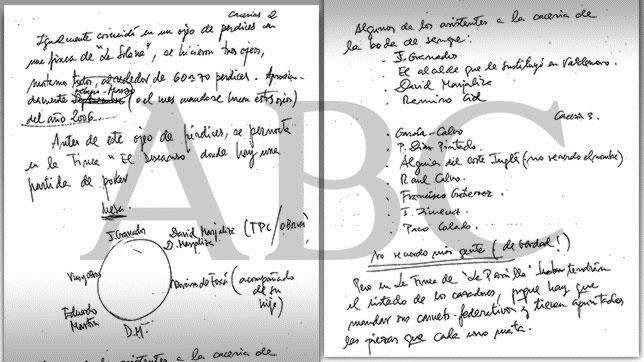 cacerias 2
Igualmente coincidí en un ojeo de perdices en
una finca de "La Solana", se hicieron tres ojeos,
matamos todo, alrededor de 60 o 70 perdices.
damente Febrero-Marzo (o el mes cuando se hacen estos ojeos)
del año 2006.
Antes de este ojeo de perdices, se pernocta
en la Finca "El Descanso" donde hay una
partida de poker
Mesa.
J. Granados
David Marjaliza (TPC/obras)
D. Marjaliza
Ramiro de Toxá (acompañado de su hijo)
Eduardo
Martín
D.M.
asistentes a la cacería de
Algunos de los asistentes a la cacería de
la boda de sangre:
· J. Granados
El alcalde que le sustituyó en Valdemoro.
· David Marjaliza
· Ramiro Cid
Caceria 3.
· García-Calvo
· P. Pintado.
· Alguien del Corte Inglés (no recuerdo el nombre)
· Raul Calvo.
· Francisco Gutierrez
· J. Jimenez
· Paco Colado.
No recuerdo más gente (de verdad!)
Pero en la Finca de "La Parrilla" tendrían
el listado de los cazadores, porque hay que
mandar sus carnets federativos y tienen apuntadas
las piezas que cada uno mata.
ABC